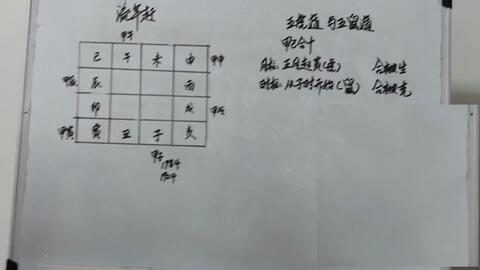 流年赶
甲午
巳 午 未 申 甲申
甲辰 辰 酉
卯 戌 甲戌
甲寅 寅 丑 子 亥
甲子
1984
1924
五虎遁 与 五鼠遁
甲己合土
月柱 正月起寅(虎) 合相生
时柱 从子时开始(鼠) 合相克